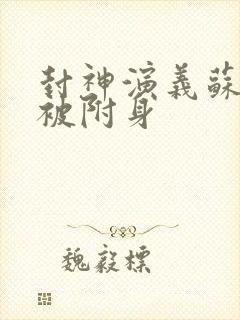 封神演義蘇
被附身
魏毅標